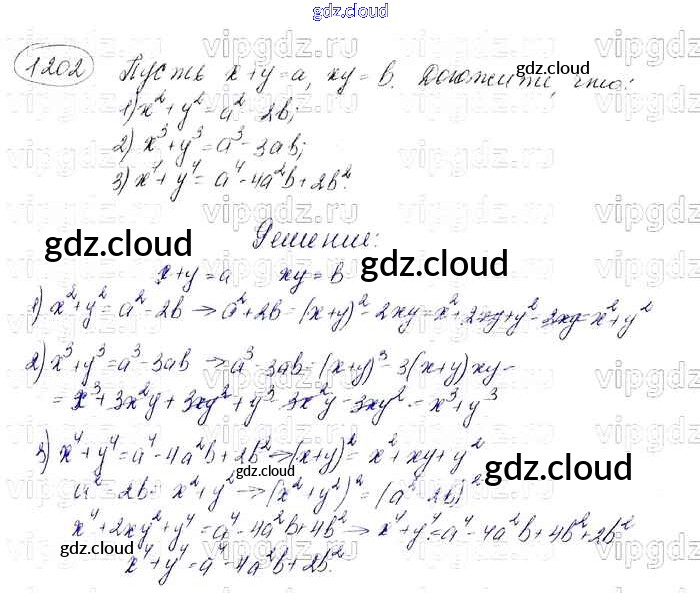 gdz.cloud
1202 Пусть x + y = a, xy = b. Докажите, что:
1) x² + y² = a² - 2b;
2) x³ + y³ = a³ - 3ab;
3) x⁴ + y⁴ = a⁴ - 4a²b + 2b².
Решение:
x + y = a xy = b
1) x² + y² = a² - 2b → a² + 2b = (x+y)² - 2xy = x² + 2xy + y² - 2xy = x² + y²
2) x³ + y³ = a³ - 3ab → a³ - 3ab = (x+y)³ - 3(x+y)xy -
= x³ + 3x²y + 3xy² + y³ - 3x²y - 3xy² = x³ + y³
3) x⁴ + y⁴ = a⁴ - 4a²b + 2b² → (x+y)² = x² + xy + y²
a² - 2b = x² + y² → (x² + y²)² = (a² - 2b)²
x⁴ + 2xy² + y⁴ = a⁴ - 4a²b + 4b² → x⁴ + y⁴ = a⁴ - 4a²b + 4b² + 2b²
x⁴ + y⁴ = a⁴ - 4a²b + 2b².
gdz.cloud
gdz.cloud
gdz.cloud
gdz.cloud
gdz.cloud
gdz.cloud
gdz.cloud
vipgdz.ru